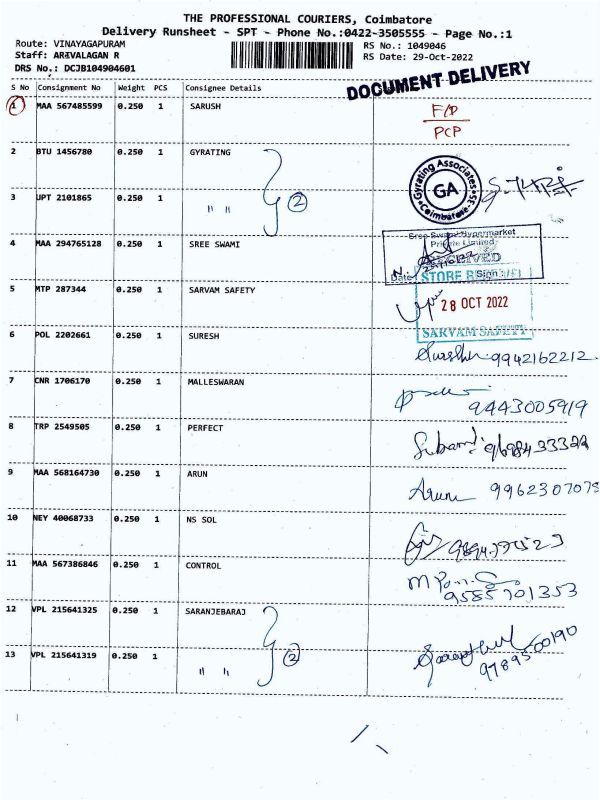 THE PROFESSIONAL COURIERS, Coimbatore
Delivery Runsheet - SPT - Phone No.:0422-3505555 - Page No.:1
Route: VINAYAGAPURAM
RS No.: 1049046
Staff: ARIVALAGAN R
RS Date: 29-Oct-2022
DRS No.: DCJB104904601
DOCUMENT DELIVERY
S No Consignment No Weight PCS Consignee Details
1 MAA 567485599 0.250 1 SARUSH F/D
PCP
2 BTU 1456780 0.250 1 GYRATING
Gyrating Associates
GA
Coimbatore-35
3 JPT 2101865 0.250 1 " " 2
4 MAA 294765128 0.250 1 SREE SWAMI
Sree Swami Hypermarket
Private Limited
RECEIVED
Date Sign
5 MTP 287344 0.250 1 SARVAM SAFETY
28 OCT 2022
SARVAM SAFETY
6 POL 2202661 0.250 1 SURESH 9942162212
7 CNR 1706170 0.250 1 MALLESWARAN
9443005919
8 TRP 2549505 0.250 1 PERFECT
9 MAA 568164730 0.250 1 ARUN Arun 9962307079
10 NEY 40068733 0.250 1 NS SOL
11 MAA 567386846 0.250 1 CONTROL
9585701353
12 VPL 215641325 0.250 1 SARANJEBARAJ
13 VPL 215641319 0.250 1 " " 2
9789500190